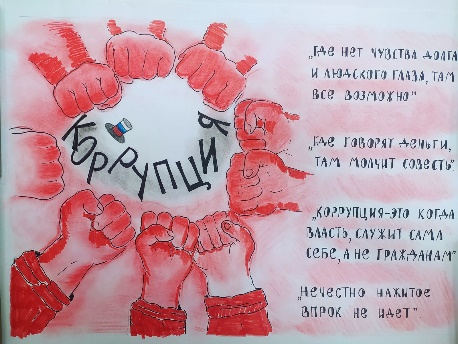 КОРРУПЦИЯ
„ГДЕ НЕТ ЧУВСТВА ДОЛГА
И ЛЮДСКОГО ГЛАЗА, ТАМ
ВСЕ ВОЗМОЖНО"
„ГДЕ ГОВОРЯТ ДЕНЬГИ,
ТАМ МОЛЧИТ СОВЕСТЬ".
„КОРРУПЦИЯ-ЭТО КОГДА
ВЛАСТЬ, СЛУЖИТ САМА
СЕБЕ, А НЕ ГРАЖДАНАМ"
„НЕЧЕСТНО НАЖИТОЕ
ВПРОК НЕ ИДЕТ".